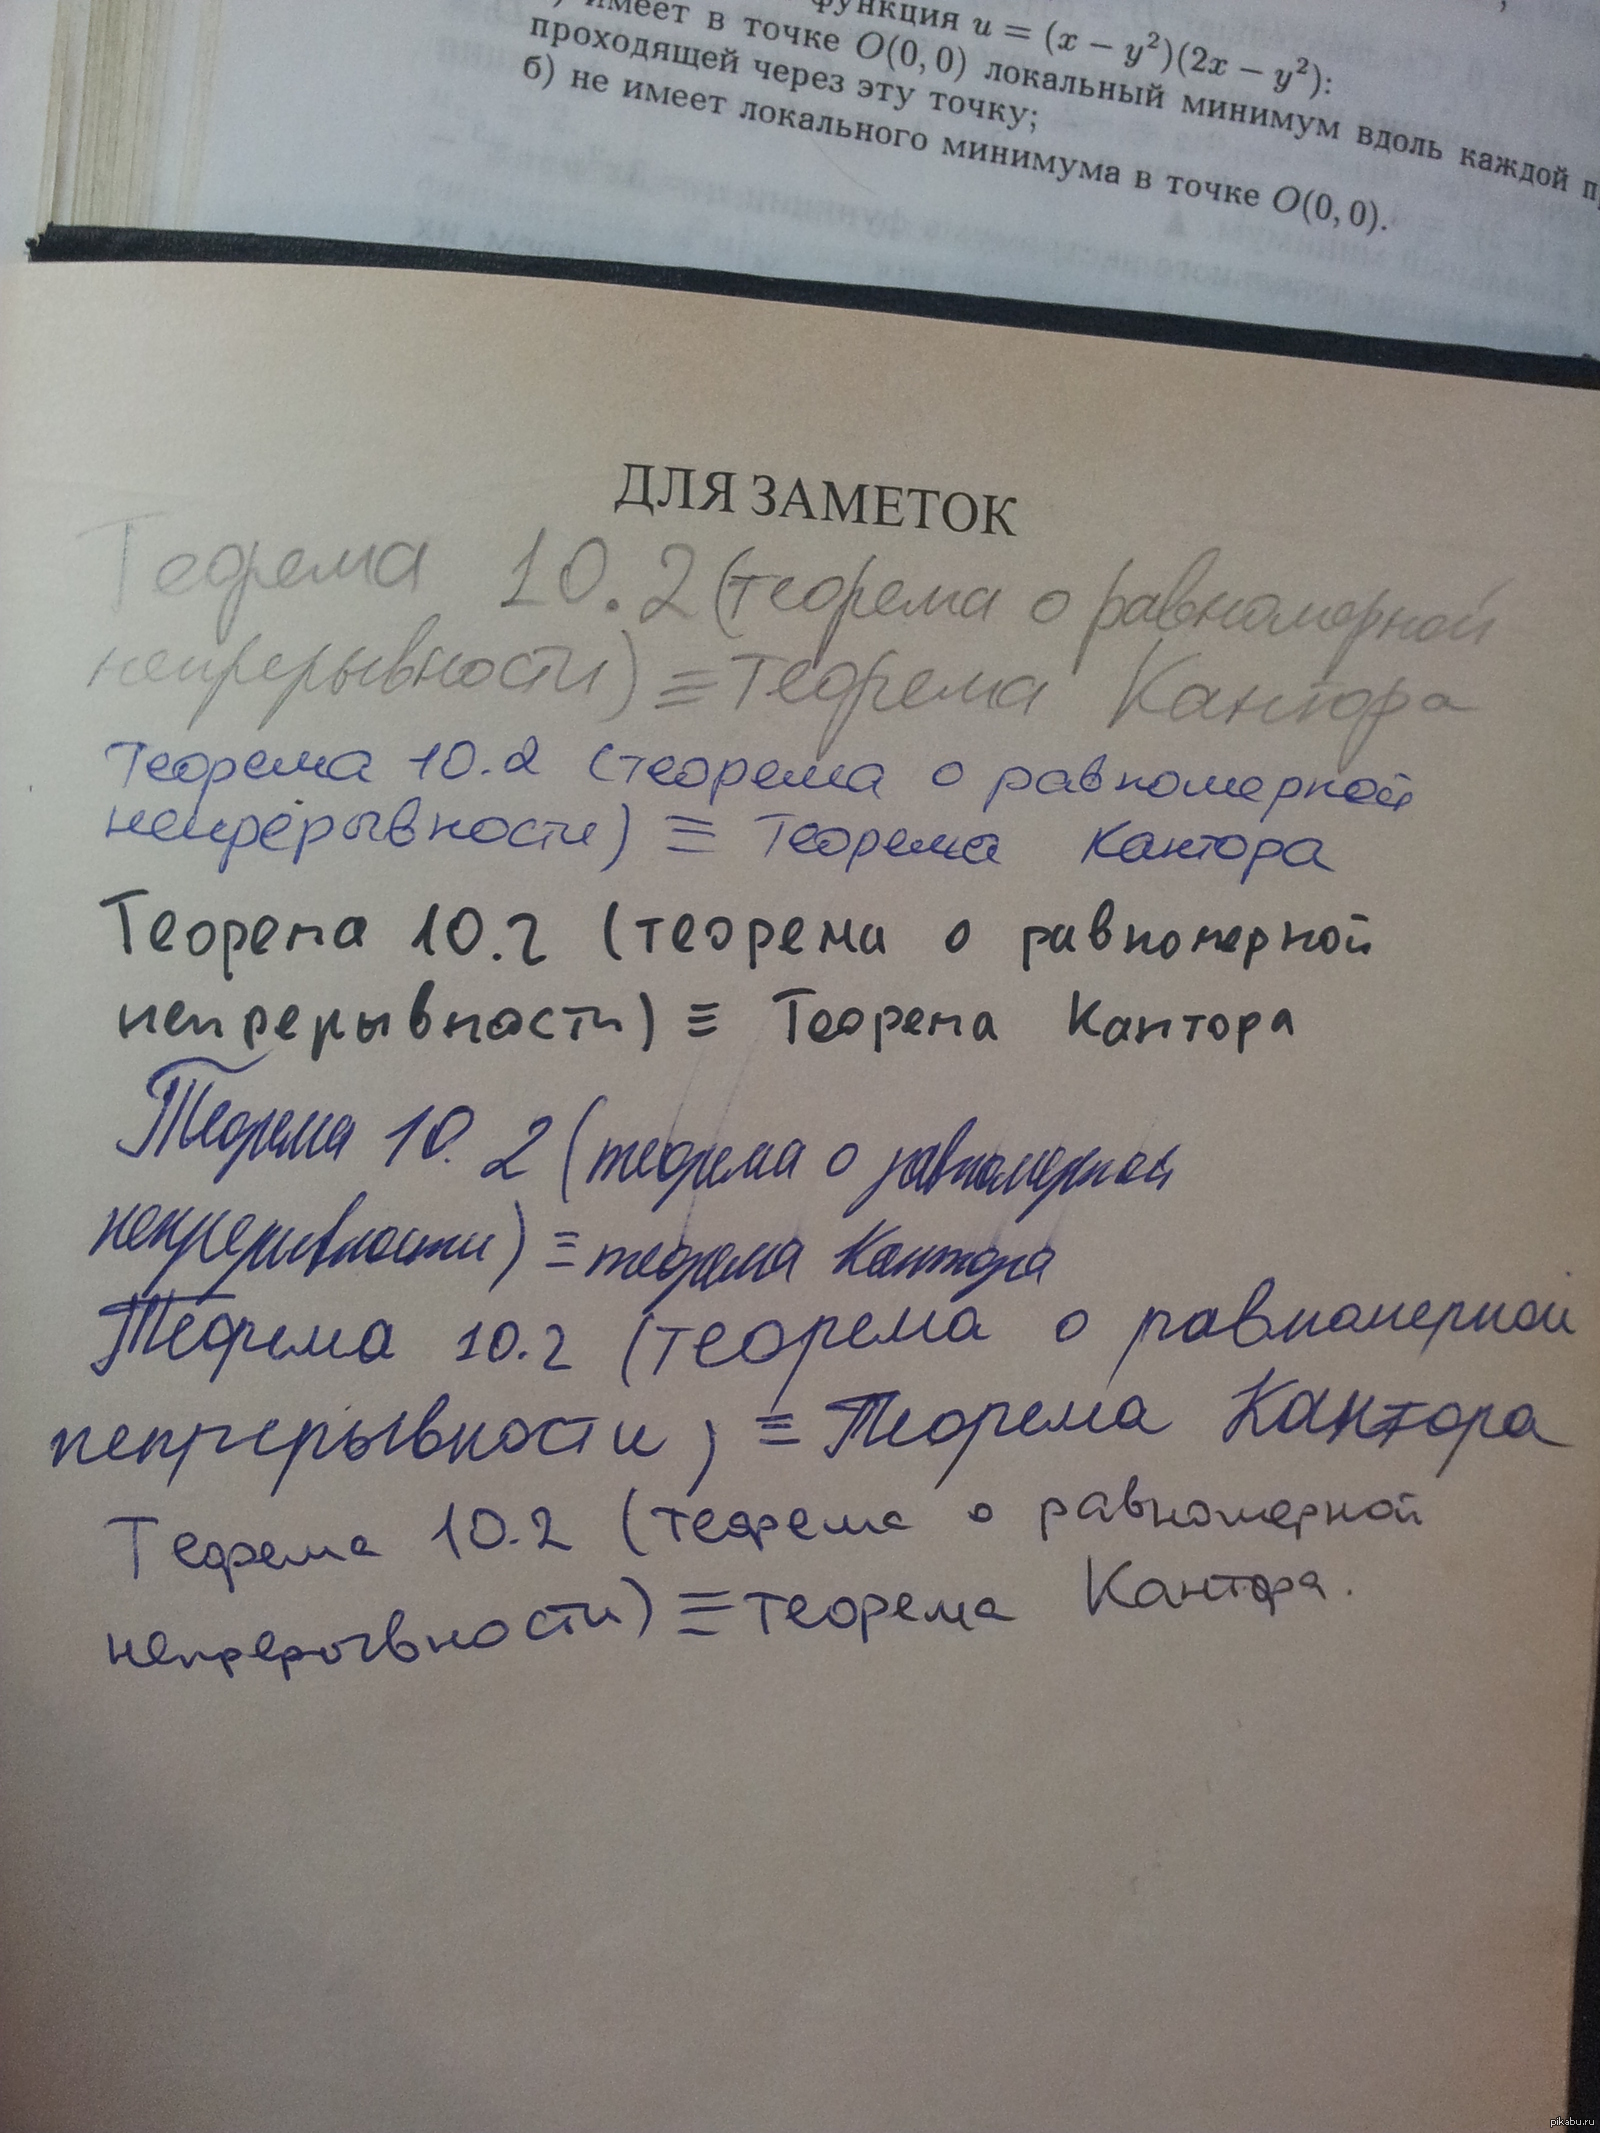 функция u = (x − y²)(2x − y²):
имеет в точке O(0, 0) локальный минимум вдоль каждой
проходящей через эту точку;
б) не имеет локального минимума в точке O(0, 0).
ДЛЯ ЗАМЕТОК
Теорема 10.2 (теорема о равномерной
непрерывности) ≡ Теорема Кантора
Теорема 10.2 (теорема о равномерной
непрерывности) ≡ Теорема Кантора
Теорема 10.2 (теорема о равномерной
непрерывности) ≡ Теорема Кантора
Теорема 10.2 (теорема о равномерной
непрерывности) ≡ теорема Кантора
Теорема 10.2 (теорема о равномерной
непрерывности) ≡ Теорема Кантора
Теорема 10.2 (теорема о равномерной
непрерывности) ≡ теорема Кантора.
pikabu.ru